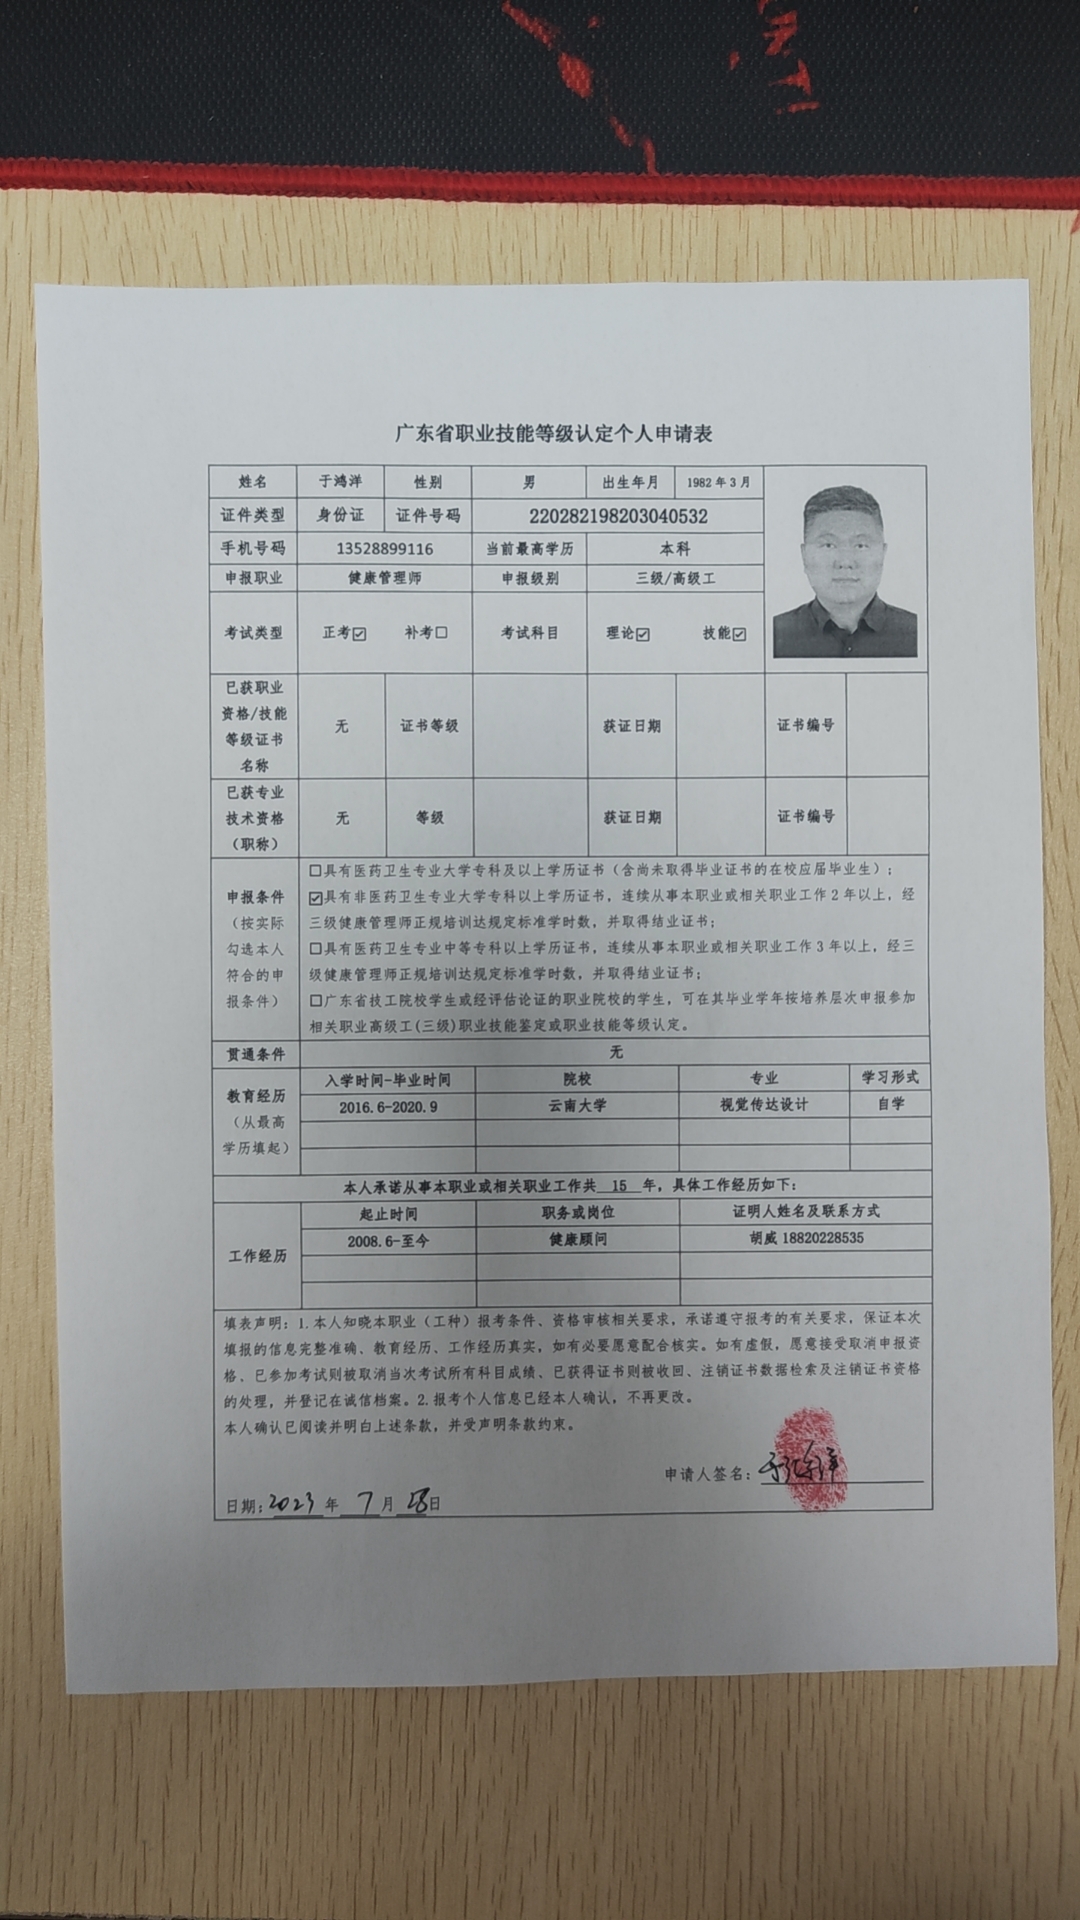 NTI
广东省职业技能等级认定个人申请表
姓名 于鸿洋 性别 男 出生年月 1982年3月
证件类型 身份证 证件号码 220282198203040532
手机号码 13528899116 当前最高学历 本科
申报职业 健康管理师 申报级别 三级/高级工
考试类型 正考☑ 补考☐ 考试科目 理论☑ 技能☑
已获职业
资格/技能
等级证书
名称
无 证书等级 获证日期 证书编号
已获专业
技术资格
（职称）
无 等级 获证日期 证书编号
申报条件
（按实际
勾选本人
符合的申
报条件）
☐具有医药卫生专业大学专科及以上学历证书（含尚未取得毕业证书的在校应届毕业生）；
☑具有非医药卫生专业大学专科以上学历证书，连续从事本职业或相关职业工作2年以上，经
三级健康管理师正规培训达规定标准学时数，并取得结业证书；
☐具有医药卫生专业中等专科以上学历证书，连续从事本职业或相关职业工作3年以上，经三
级健康管理师正规培训达规定标准学时数，并取得结业证书；
☐广东省技工院校学生或经评估论证的职业院校的学生，可在其毕业学年按培养层次申报参加
相关职业高级工(三级)职业技能鉴定或职业技能等级认定。
贯通条件 无
教育经历
（从最高
学历填起）
入学时间-毕业时间 院校 专业 学习形式
2016.6-2020.9 云南大学 视觉传达设计 自学
本人承诺从事本职业或相关职业工作共 15 年，具体工作经历如下：
工作经历
起止时间 职务或岗位 证明人姓名及联系方式
2008.6-至今 健康顾问 胡威 18820228535
填表声明：1.本人知晓本职业（工种）报考条件、资格审核相关要求，承诺遵守报考的有关要求，保证本次
填报的信息完整准确、教育经历、工作经历真实，如有必要愿意配合核实。如有虚假，愿意接受取消申报资
格、已参加考试则被取消当次考试所有科目成绩、已获得证书则被收回、注销证书数据检索及注销证书资格
的处理，并登记在诚信档案。2.报考个人信息已经本人确认，不再更改。
本人确认已阅读并明白上述条款，并受声明条款约束。
申请人签名：于鸿洋
日期：2023 年 7 月 28日